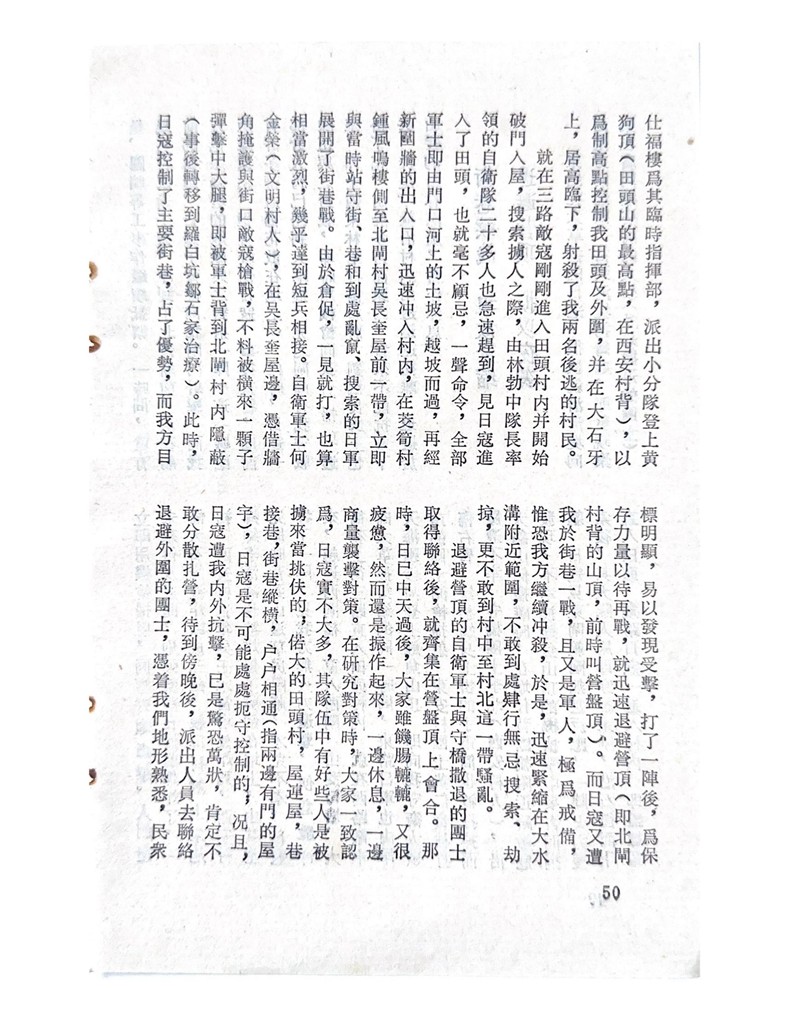 仕福樓爲其臨時指揮部，派出小分隊登上黄
狗頂（田頭山的最高點，在西安村背），以
爲制高點控制我田頭及外圍，并在大石牙
上，居高臨下，射殺了我兩名後逃的村民。
就在三路敵寇剛剛進入田頭村内并開始
破門入屋，搜索擄人之際，由林勃中隊長率
領的自衛隊二十多人也急速趕到，見日寇進
入了田頭，也就毫不顧忌，一聲命令，全部
軍士即由門口河上的土坡，越坡而過，再經
新圍牆的出入口，迅速冲入村内，在茭筍村
鍾風鳴樓側至北閘村吳長奎屋前一帶，立即
與當時站守街、巷和到處亂竄、搜索的日軍
展開了街巷戰。由於倉促，一見就打，也算
相當激烈，幾乎達到短兵相接。自衛軍士何
金榮（文明村人），在吳長奎屋邊，憑借牆
角掩護與街口敵寇槍戰，不料被横來一顆子
彈擊中大腿，即被軍士背到北閘村内隱蔽
（事後轉移到羅白坑鄒石家治療）。此時，
日寇控制了主要街巷，占了優勢，而我方目
標明顯，易以發現受擊，打了一陣後，爲保
存力量以待再戰，就迅速退避營頂（即北閘
村背的山頂，前時叫營盤頂）。而日寇又遭
我於街巷一戰，且又是軍人，極爲戒備，
惟恐我方繼續冲殺，於是，迅速緊縮在大水
溝附近範圍，不敢到處肆行無忌搜索、劫
掠，更不敢到村中至村北這一帶騷亂。
退避營頂的自衛軍士與守橋撤退的團士
取得聯絡後，就齊集在營盤頂上會合。那
時，日已中天過後，大家雖饑腸轆轆，又很
疲憊，然而還是振作起來，一邊休息，一邊
商量襲擊對策。在研究對策時，大家一致認
爲，日寇實不大多，其隊伍中有好些人是被
擄來當挑伕的；偌大的田頭村，屋連屋，巷
接巷，街巷縱横，户户相通（指兩邊有門的屋
宇），日寇是不可能處處扼守控制的；况且，
日寇遭我内外抗擊，已是驚恐萬狀，肯定不
敢分散扎營，待到傍晚後，派出人員去聯絡
退避外圍的團士，憑着我們地形熟悉，民衆
50